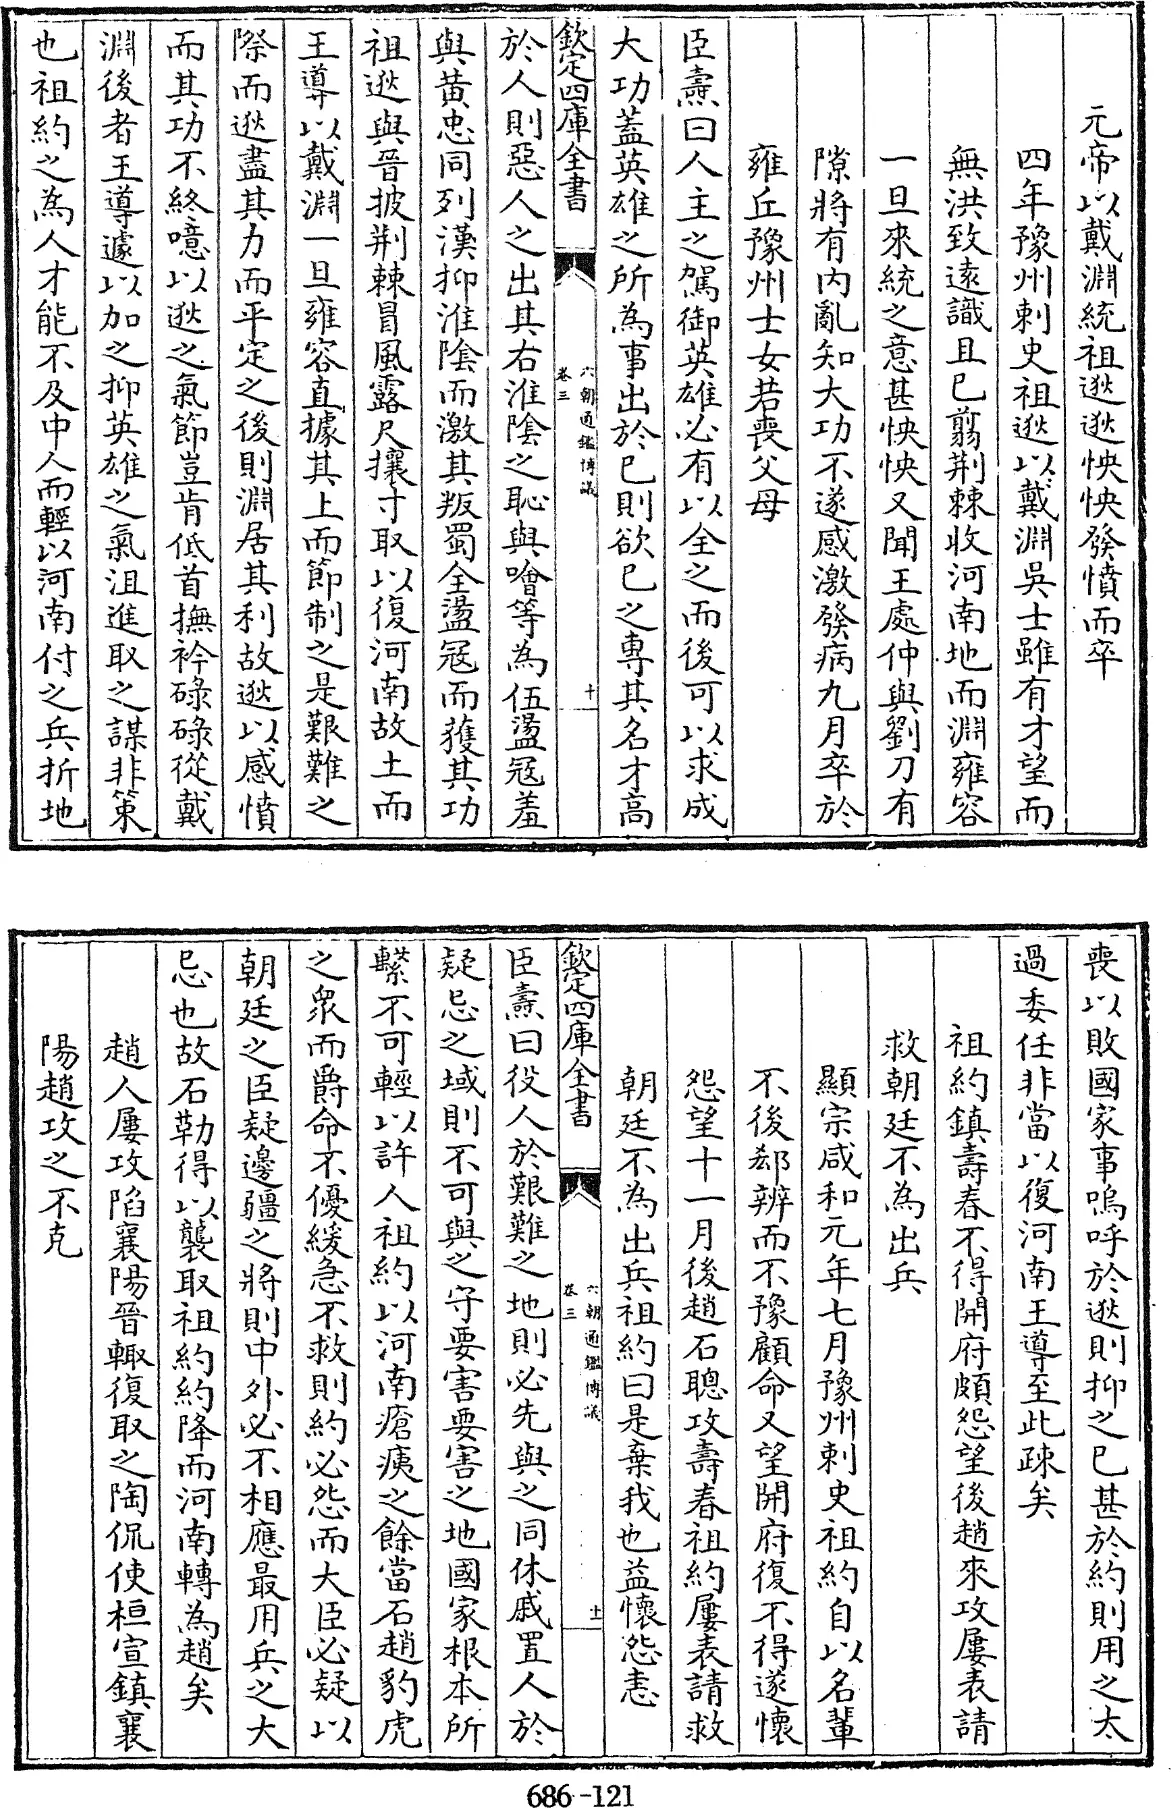 元帝以戴淵統祖逖逖怏怏發憤而卒
四年豫州刺史祖逖以戴淵吳士雖有才望而
無洪致遠識且已翦荆棘收河南地而淵雍容
一旦來統之意甚怏怏又聞王處仲與劉刀有
隙將有内亂知大功不遂感激發病九月卒於
雍丘豫州士女若喪父母
臣燾曰人主之駕御英雄必有以全之而後可以求成
大功葢英雄之所為事出於已則欲已之專其名才高
欽定四庫全書
六朝通鑑博議
卷三
十
於人則惡人之出其右淮隂之恥與噲等為伍盪宼羞
與黄忠同列漢抑淮隂而激其叛蜀全盪宼而獲其功
祖逖與晉披荆棘冒風露尺攘寸取以復河南故土而
王導以戴淵一旦雍容直據其上而節制之是艱難之
際而逖盡其力而平定之後則淵居其利故逖以感憤
而其功不終噫以逖之氣節豈肯低首撫衿碌碌從戴
淵後者王導遽以加之抑英雄之氣沮進取之謀非策
也祖約之為人才能不及中人而輕以河南付之兵折地
喪以敗國家事嗚呼於逖則抑之已甚於約則用之太
過委任非當以復河南王導至此疎矣
祖約鎮壽春不得開府頗怨望後趙來攻屢表請
救朝廷不為出兵
顯宗咸和元年七月豫州刺史祖約自以名輩
不後郄辨而不豫顧命又望開府復不得遂懷
怨望十一月後趙石聰攻壽春祖約屢表請救
朝廷不為出兵祖約曰是棄我也益懷怨恚
欽定四庫全書
六朝通鑑博議
卷三
十一
臣燾曰役人於艱難之地則必先與之同休戚置人於
疑忌之域則不可與之守要害要害之地國家根本所
繫不可輕以許人祖約以河南瘡痍之餘當石趙豹虎
之衆而爵命不優緩急不救則約必怨而大臣必疑以
朝廷之臣疑邊疆之將則中外必不相應最用兵之大
忌也故石勒得以襲取祖約約降而河南轉為趙矣
趙人屢攻陷襄陽晉輙復取之陶侃使桓宣鎮襄
陽趙攻之不克
686-121